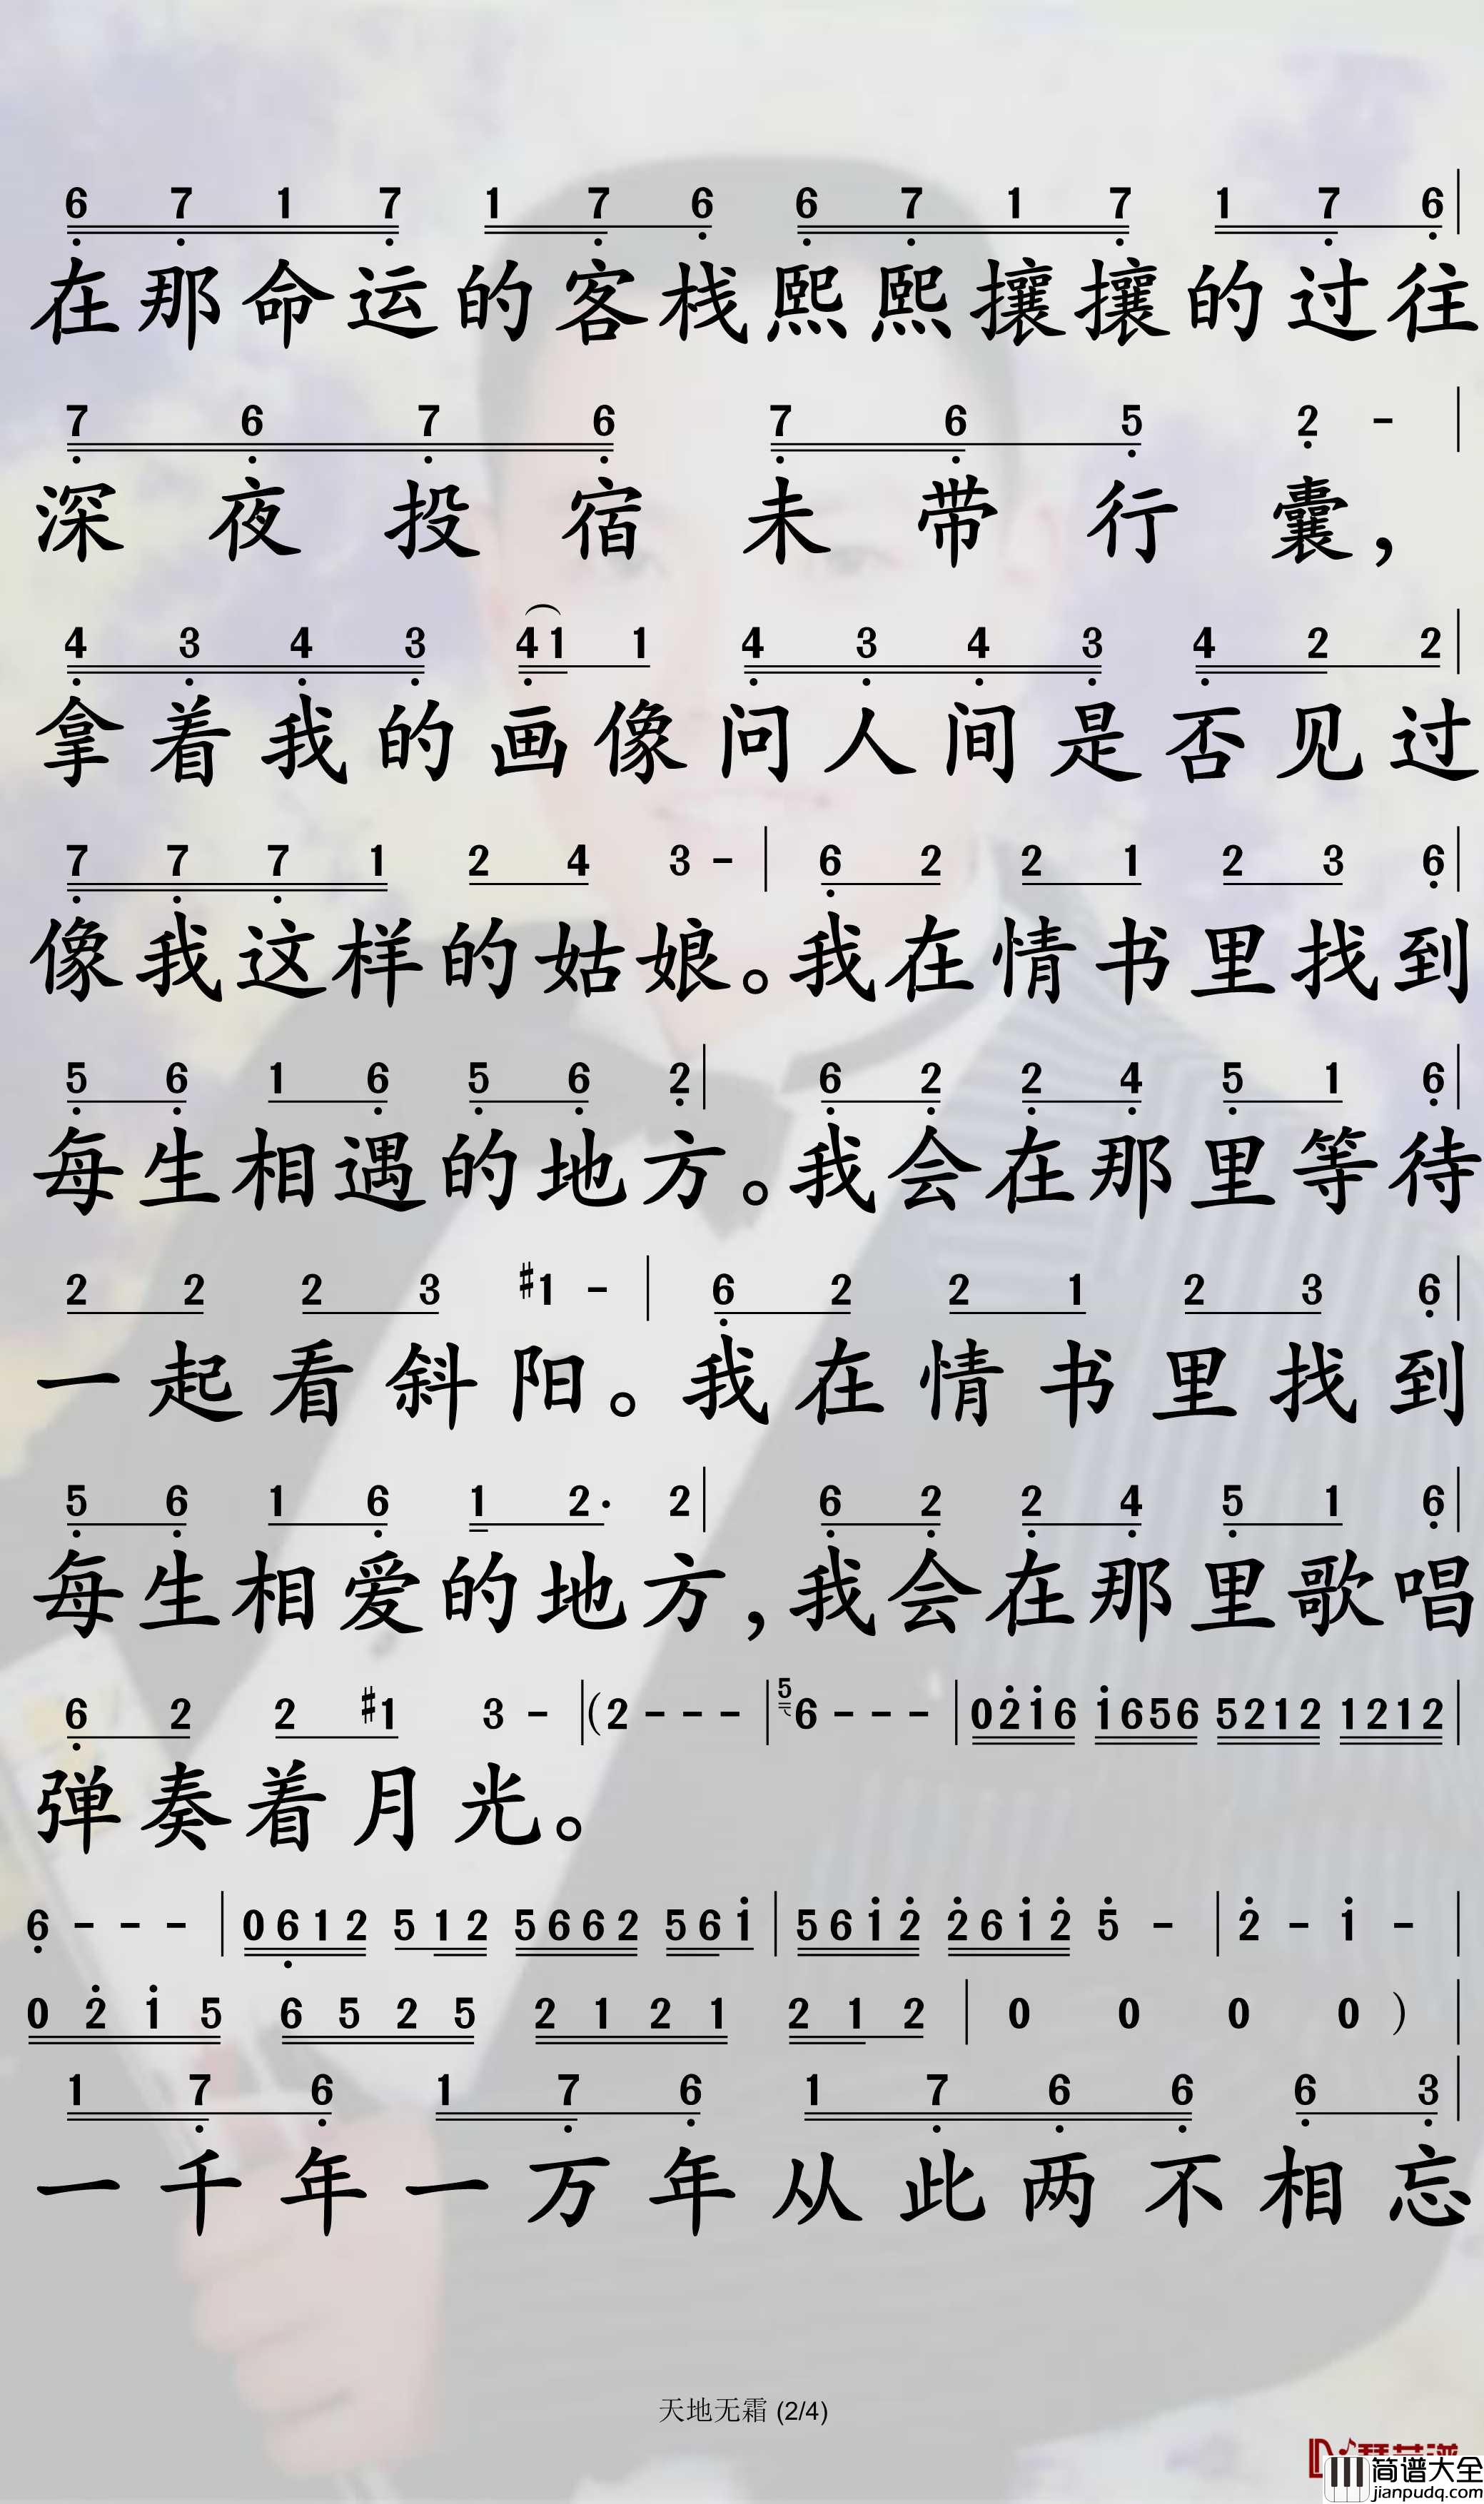 6 7 1 7 1 7 6 6 7 1 7 1 7 6
在那命运的客栈熙熙攘攘的过往
7 6 7 6 7 6 5 2 -
深夜投宿未带行囊，
4 3 4 3 4 1 1 4 3 4 3 4 2 2
拿着我的画像问人间是否见过
7 7 7 1 2 4 3 - 6 2 2 1 2 3 6
像我这样的姑娘。我在情书里找到
5 6 1 6 5 6 2 6 2 2 4 5 1 6
每生相遇的地方。我会在那里等待
2 2 2 3 #1 - 6 2 2 1 2 3 6
一起看斜阳。我在情书里找到
5 6 1 6 1 2· 2 6 2 2 4 5 1 6
每生相爱的地方，我会在那里歌唱
6 2 2 #1 3 - (2 - - - 5 6 - - - 0216 1656 5212 1212
弹奏着月光。
6 - - - 0612 512 5662 561 5612 2612 5 - 2 - 1 -
0 2 1 5 6 5 2 5 2 1 2 1 2 1 2 0 0 0 0 )
1 7 6 1 7 6 1 7 6 6 6 3
一千年一万年从此两不相忘
天地无霜 (2/4)
简谱大全
jianpudq.com